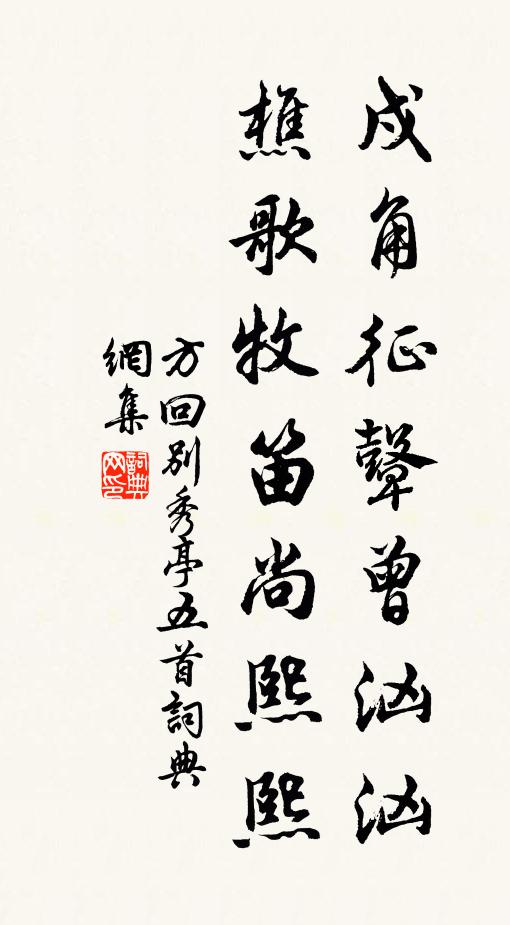 戍角征鼙曾汹汹
樵歌牧笛尚熙熙
方回别秀亭五首詞典
網集
詞典
网印